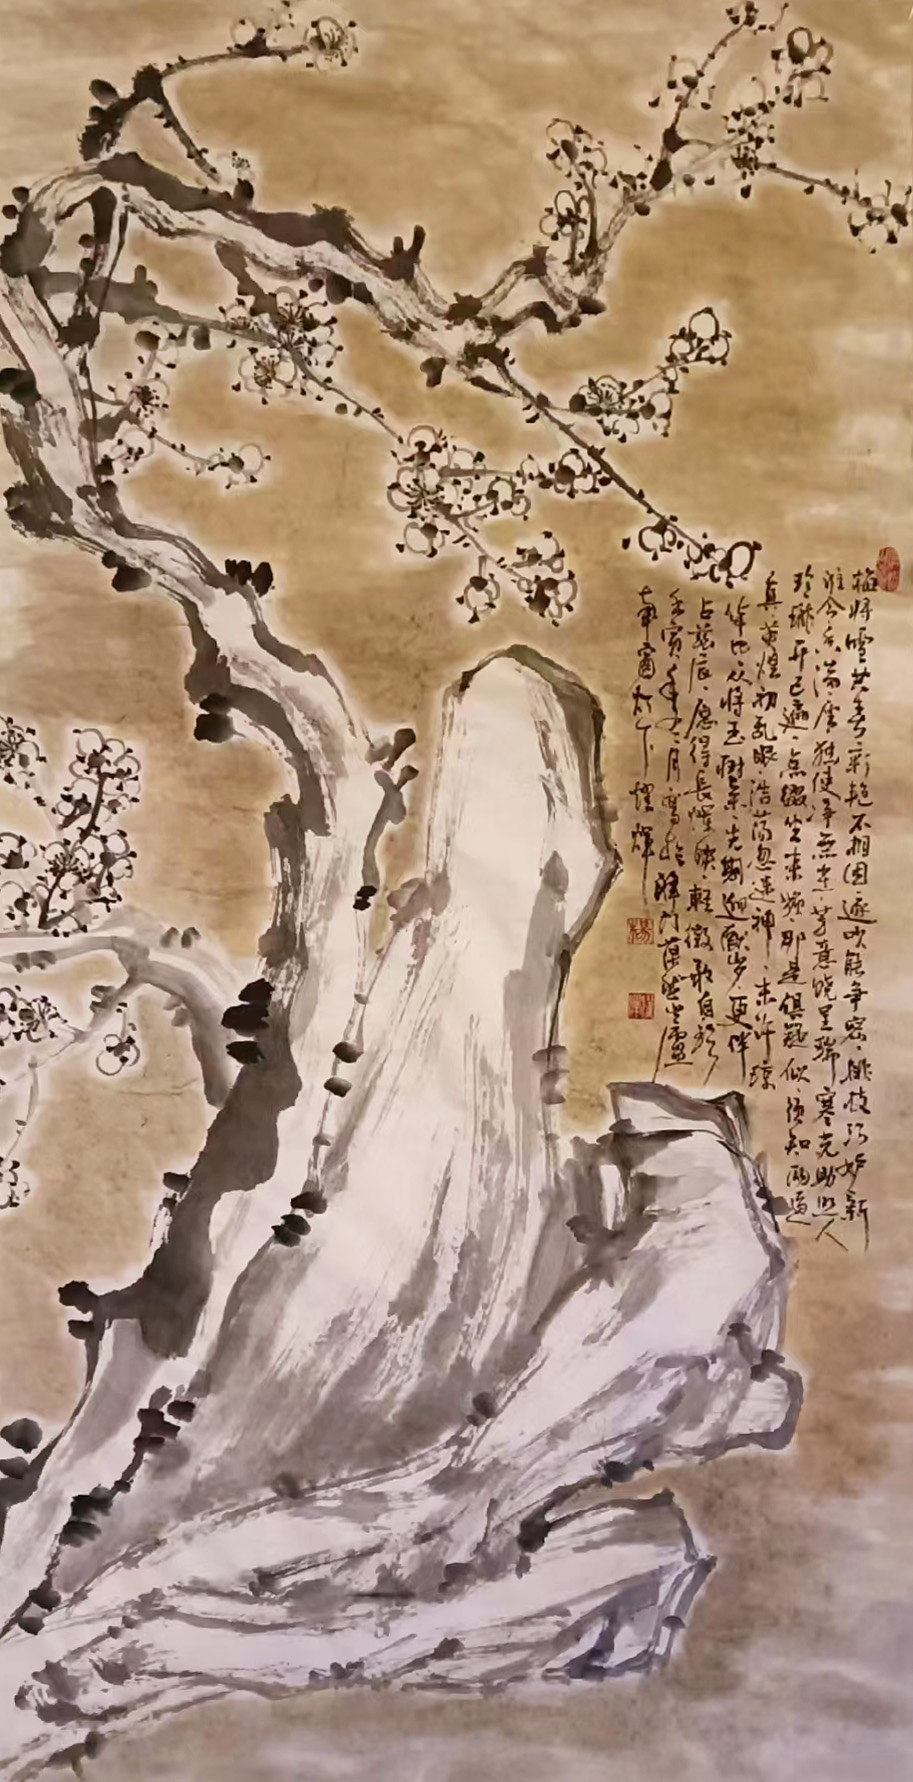 梅將雪共春彩艳不相因逐吹能争密排枝巧妒新
谁令香满座独使净無尘芳意饶呈瑞寒光助照人
玲珑开已遍点缀坐来频那是俱疑似须知两逼
真荧煌初乱眼浩荡忽迷神未许琼
华比從将玉树亲先期迎献岁更伴
占兹辰愿得長辉映輕微敢自珍
壬寅年十二月寫於津门山廬
南窗灯下耀輝